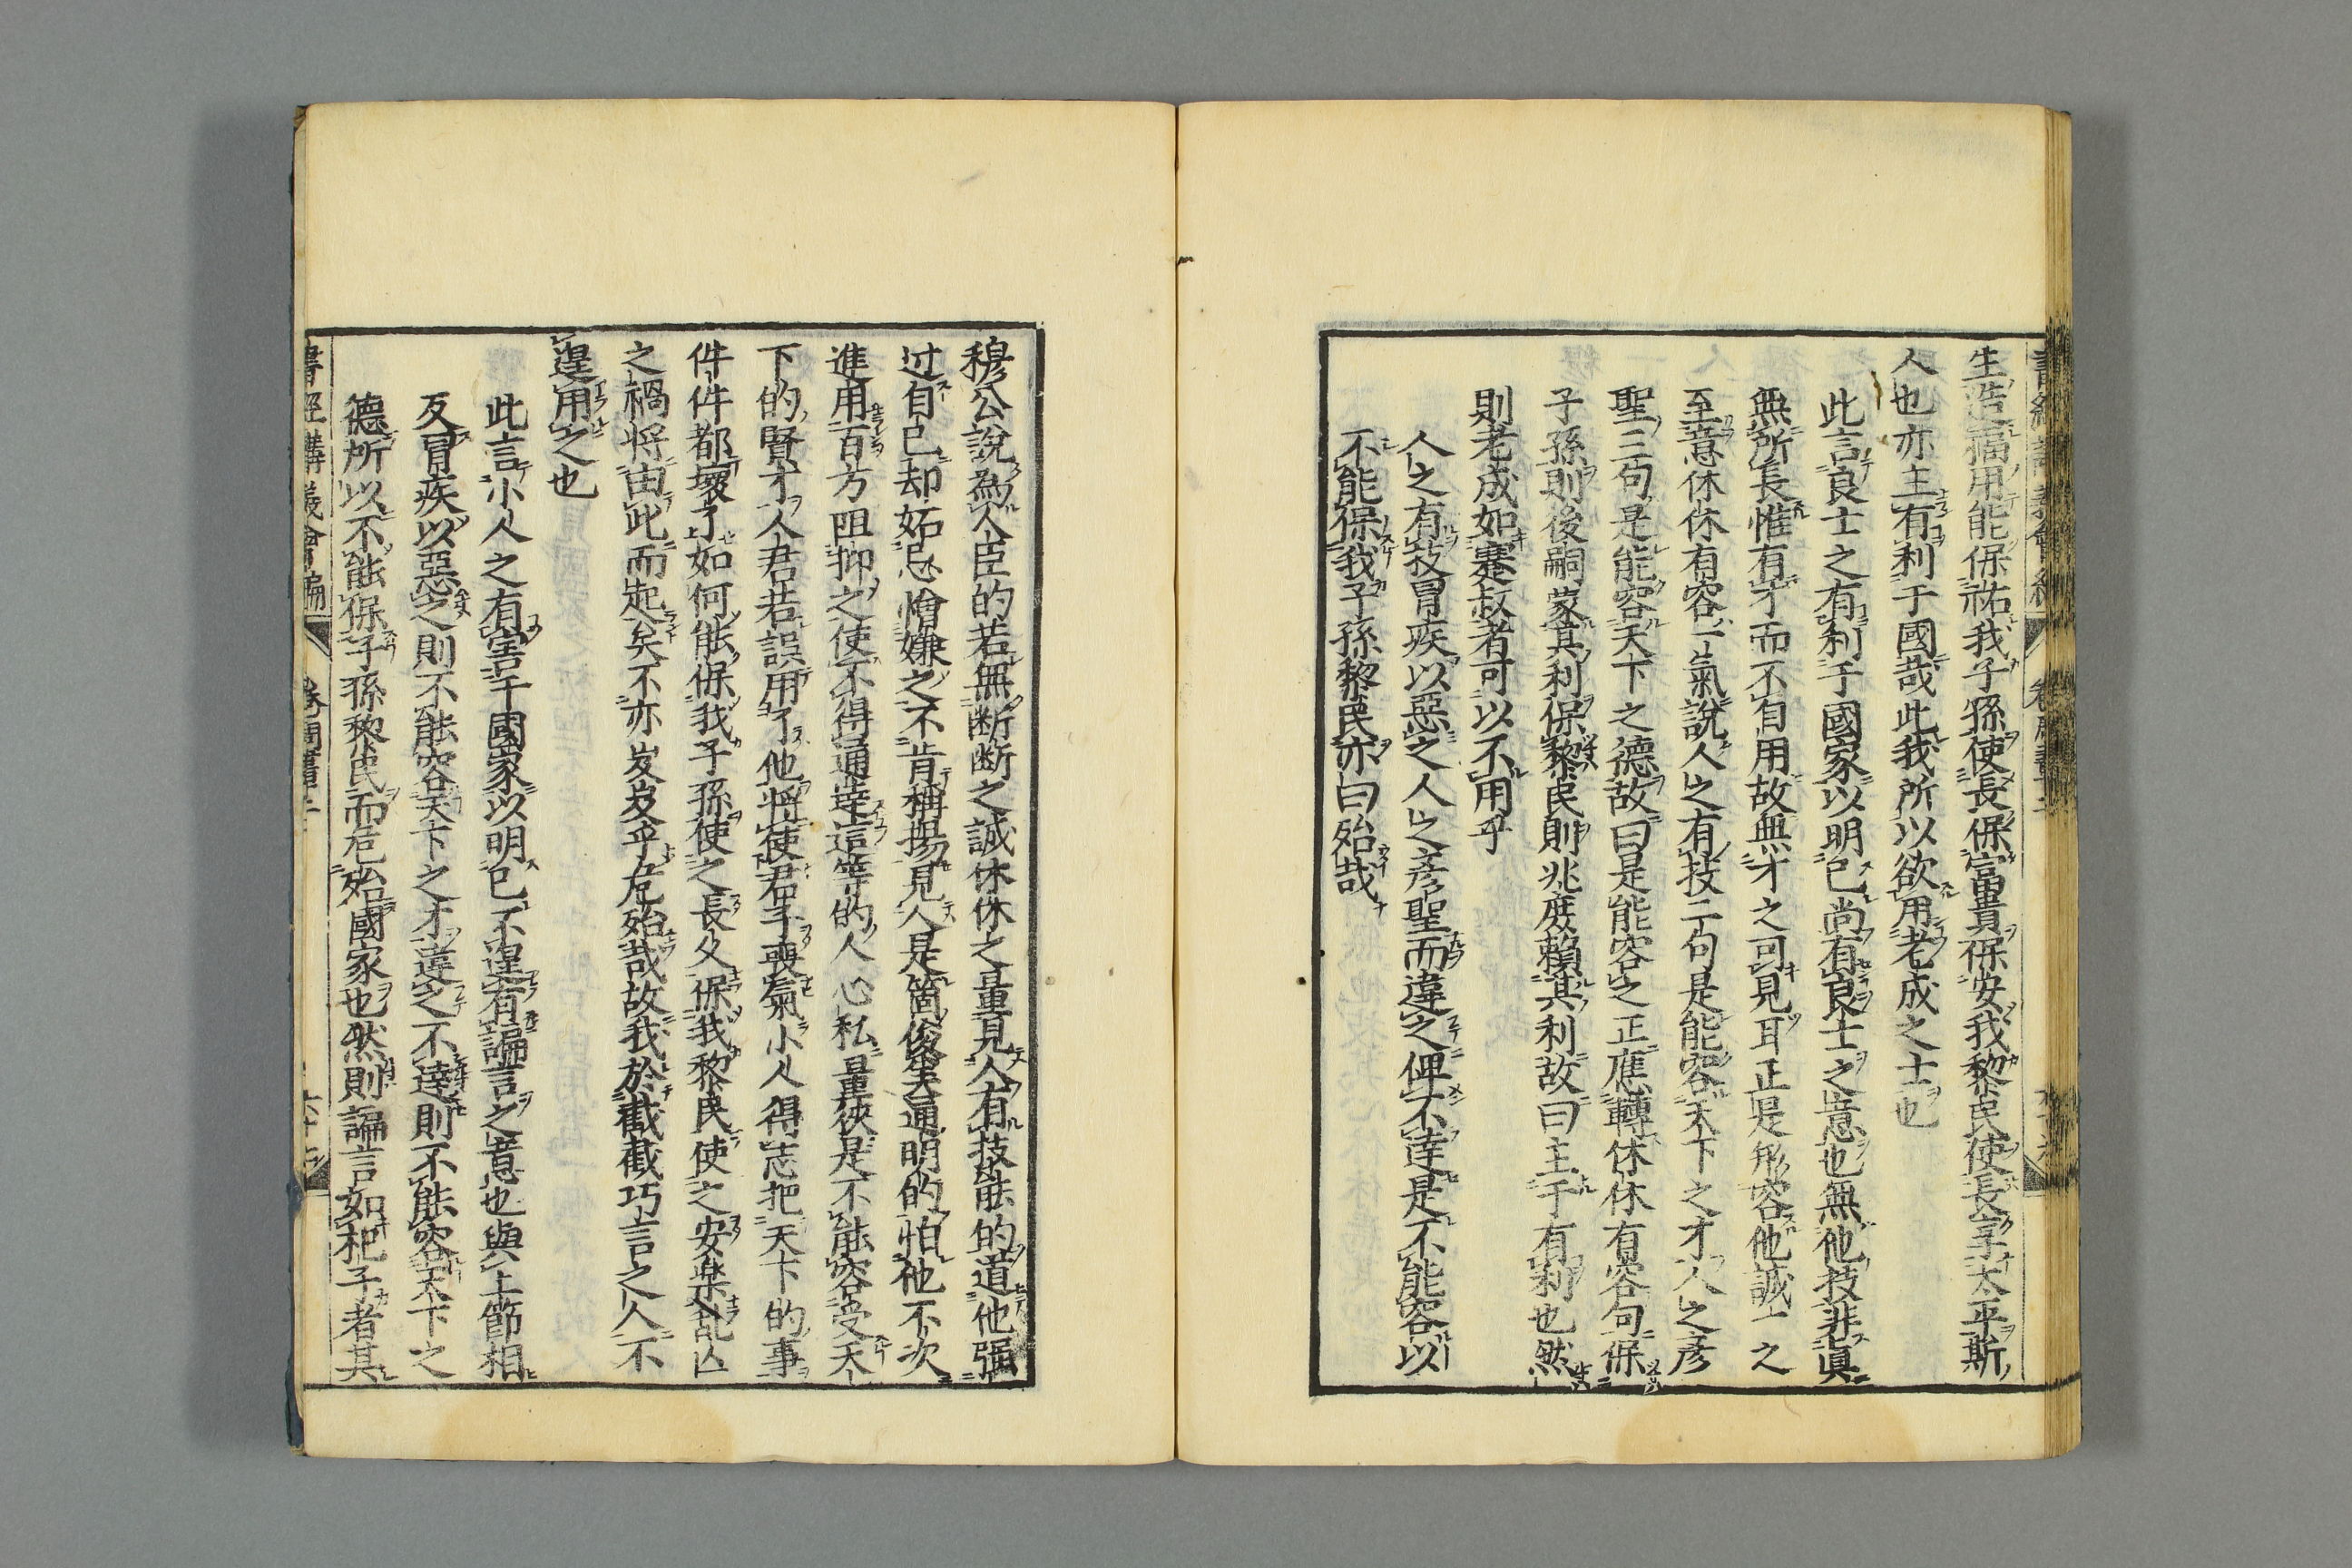 生造福用能保祐我子孫使長保富貴保安我黎民使長享太平斯
人也亦主有利于國哉此我所以欲用老成之士也
此言良士之有利于國家以明已尚有良士之意也無他技非真
無所長惟有才而不自用故無才之可見耳正是形容他誠一之
至意休休有容一氣說人之有技二句是能容天下之才人之彥
聖三句是能容天下之德故曰是能容之正應轉休休有容句保
子孫則後嗣蒙其利保黎民則兆庶賴其利故曰主于有利也然
則老成如蹇叔者可以不用乎
人之有技冒疾以惡之人之彥聖而違之俾不達是不能容以
不能保我子孫黎民亦曰殆哉
穆公說為人臣的若無断断之誠休休之量見人有技能的道他强
过自已却妬忌憎嫌之不肯稱揚見人是箇俊英通明的怕他不次
進用百方阻抑之使不得通達這等的人心私量狹是不能容受天
下的賢才人君若誤用了他將使君子喪氣小人得志把天下的事
件件都壞了如何能保我子孫使之長久保我黎民使之安楽乱亾
之禍将由此而起矣不亦岌岌乎危殆哉故我於截截巧言之人不
遑用之也
此言小人之有害于國家以明已不遑有諞言之意也與上節相
反冒疾以惡之則不能容天下之才違之不達則不能容天下之
德所以不能保子孫黎民而危殆國家也然則諞言如杞子者其
書經講義會編
卷
周書
六十